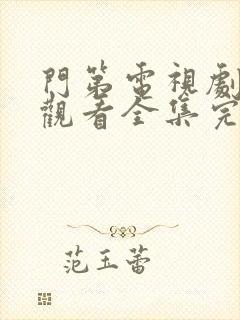 門第電視劇
觀看全集完
范玉蕾